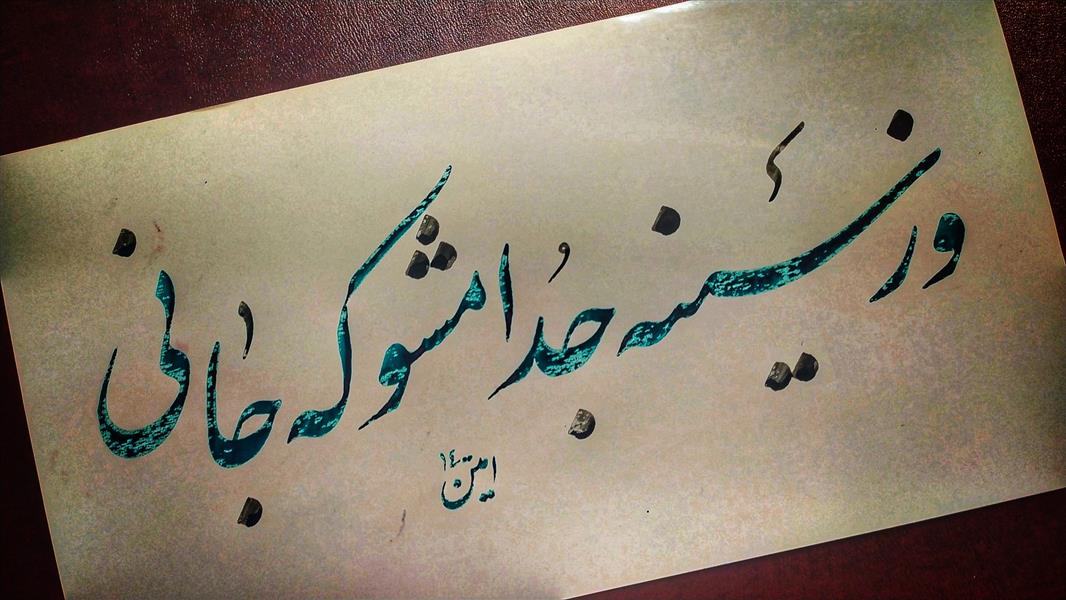 وز سینه جدا مشو که جانی
امین ١٤